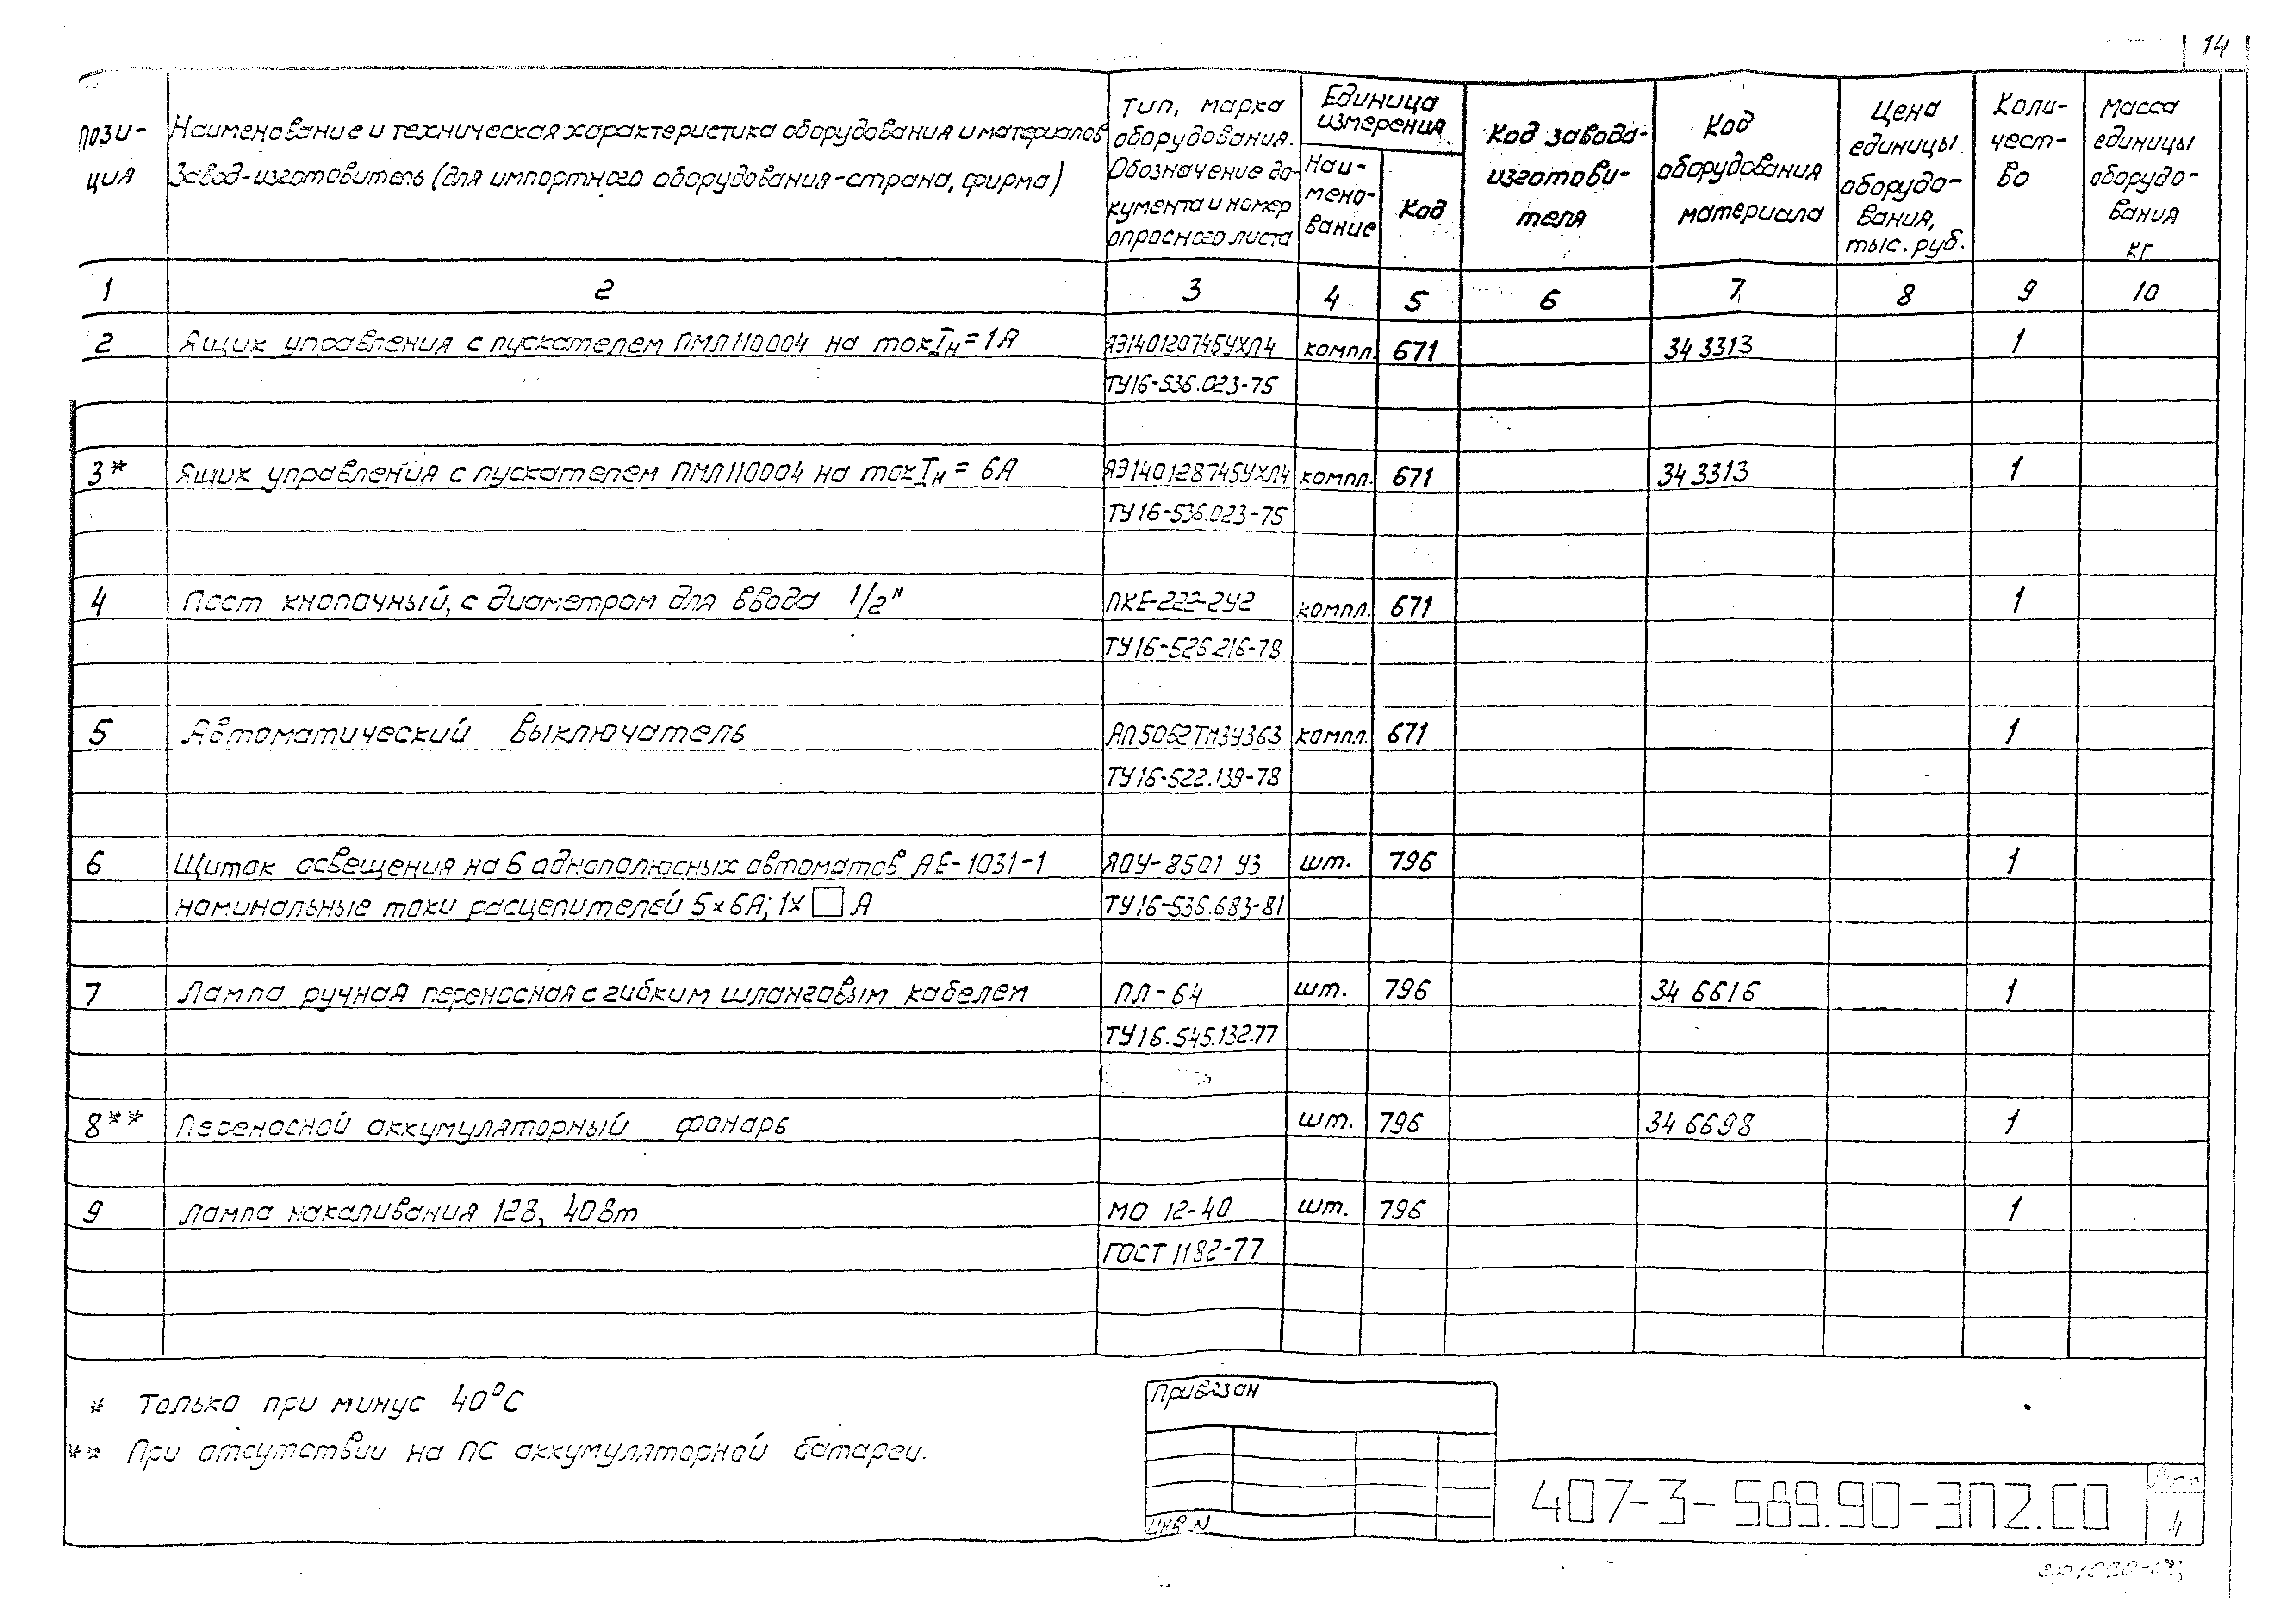 14
Пози-
ция
Наименование и техническая характеристика оборудования и материалов
Завод-изготовитель (для импортного оборудования-страна, фирма)
Тип, марка
оборудования.
Обозначение до-
кумента и номер
опросного листа
Единица
измерения
Наи-
мено-
вание
Код
Код завода-
изготови-
теля
Код
оборудования
материала
Цена
единицы
оборудо-
вания,
тыс. руб.
Коли-
чест-
во
Масса
единицы
оборудо-
вания
кг
1 2 3 4 5 6 7 8 9 10
2 Ящик управления с пускателем ПМЛ110004 на ток Iн = 1А ЯЭ140120745УХЛ4 компл. 671 34 3313 1
ТУ16-536.023-75
3* Ящик управления с пускателем ПМЛ110004 на ток Iн = 6А ЯЭ140128745УХЛ4 компл. 671 34 3313 1
ТУ16-536.023-75
4 Пост кнопочный, с диаметром для ввода 1/2" ПКЕ-222-2У2 компл. 671 1
ТУ16-526.216-78
5 Автоматический выключатель компл. 671 1
ТУ16-522.139-78
6 Щиток освещения на 6 однополюсных автоматов АЕ-1031-1 ЯОУ-8501 У3 шт. 796 1
номинальные токи расцепителей 5×6А; 1× А ТУ16-536.683-81
7 Лампа ручная переносная с гибким шланговым кабелем ПЛ-64 шт. 796 34 6616 1
ТУ16.545.132.77
8** Переносной аккумуляторный фонарь шт. 796 34 6698 1
9 Лампа накаливания 12В, 40Вт МО 12-40 шт. 796 1
ГОСТ 1182-77
* Только при минус 40°С
** При отсутствии на ПС аккумуляторной батареи.
Привязан
Инв N
407-3-589.90-ЭП2.СО
Лист
4